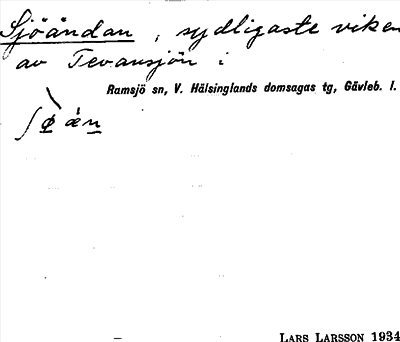 Sjöändan, sydligaste viken
av Tevansjön i
Ramsjö sn, V. Hälsinglands domsagas tg, Gävleb. l.
ʃø̠̀ æ̀n̠
LARS LARSSON 1934